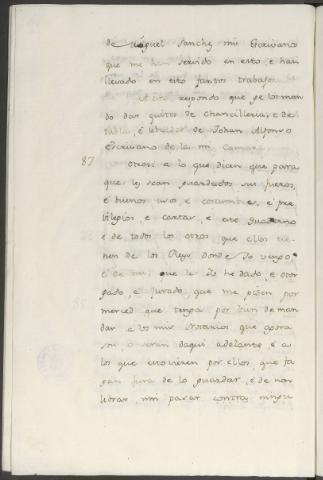 de Miguel Sanchez mio Escrivano
que me han servido en esto e han
llevado en esto fartos trabajos
A esto respondo que ge los man
do dar quitos de Chancilleria, e de
tabla, e libradas de Johan Alfonso
Escrivano de la mi Camara
87 Otrosi a lo que dicen que para
que les sean guardados sus fueros,
e buenos usos e costumbres, e pre
bilegios e cartas, e este quaderno
e de todos los otros que ellos tie-
nen de los Reyes donde Yo vengo,
e de mi, que les Yo he dado, e otor
gado, e jurado, que me piden por
merced que tenga por bien de man
dar a los mis Notarios que agora
son o seran daqui adelante, e a
los que estovieren por ellos, que fa
gan jura de lo guardar, e de non
librar, nin pasar contra ningu